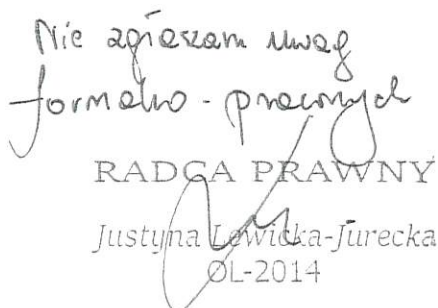 Nie zgłaszam uwag
formalno - prawnych
RADCA PRAWNY
Justyna Lewicka-Jurecka
OL-2014